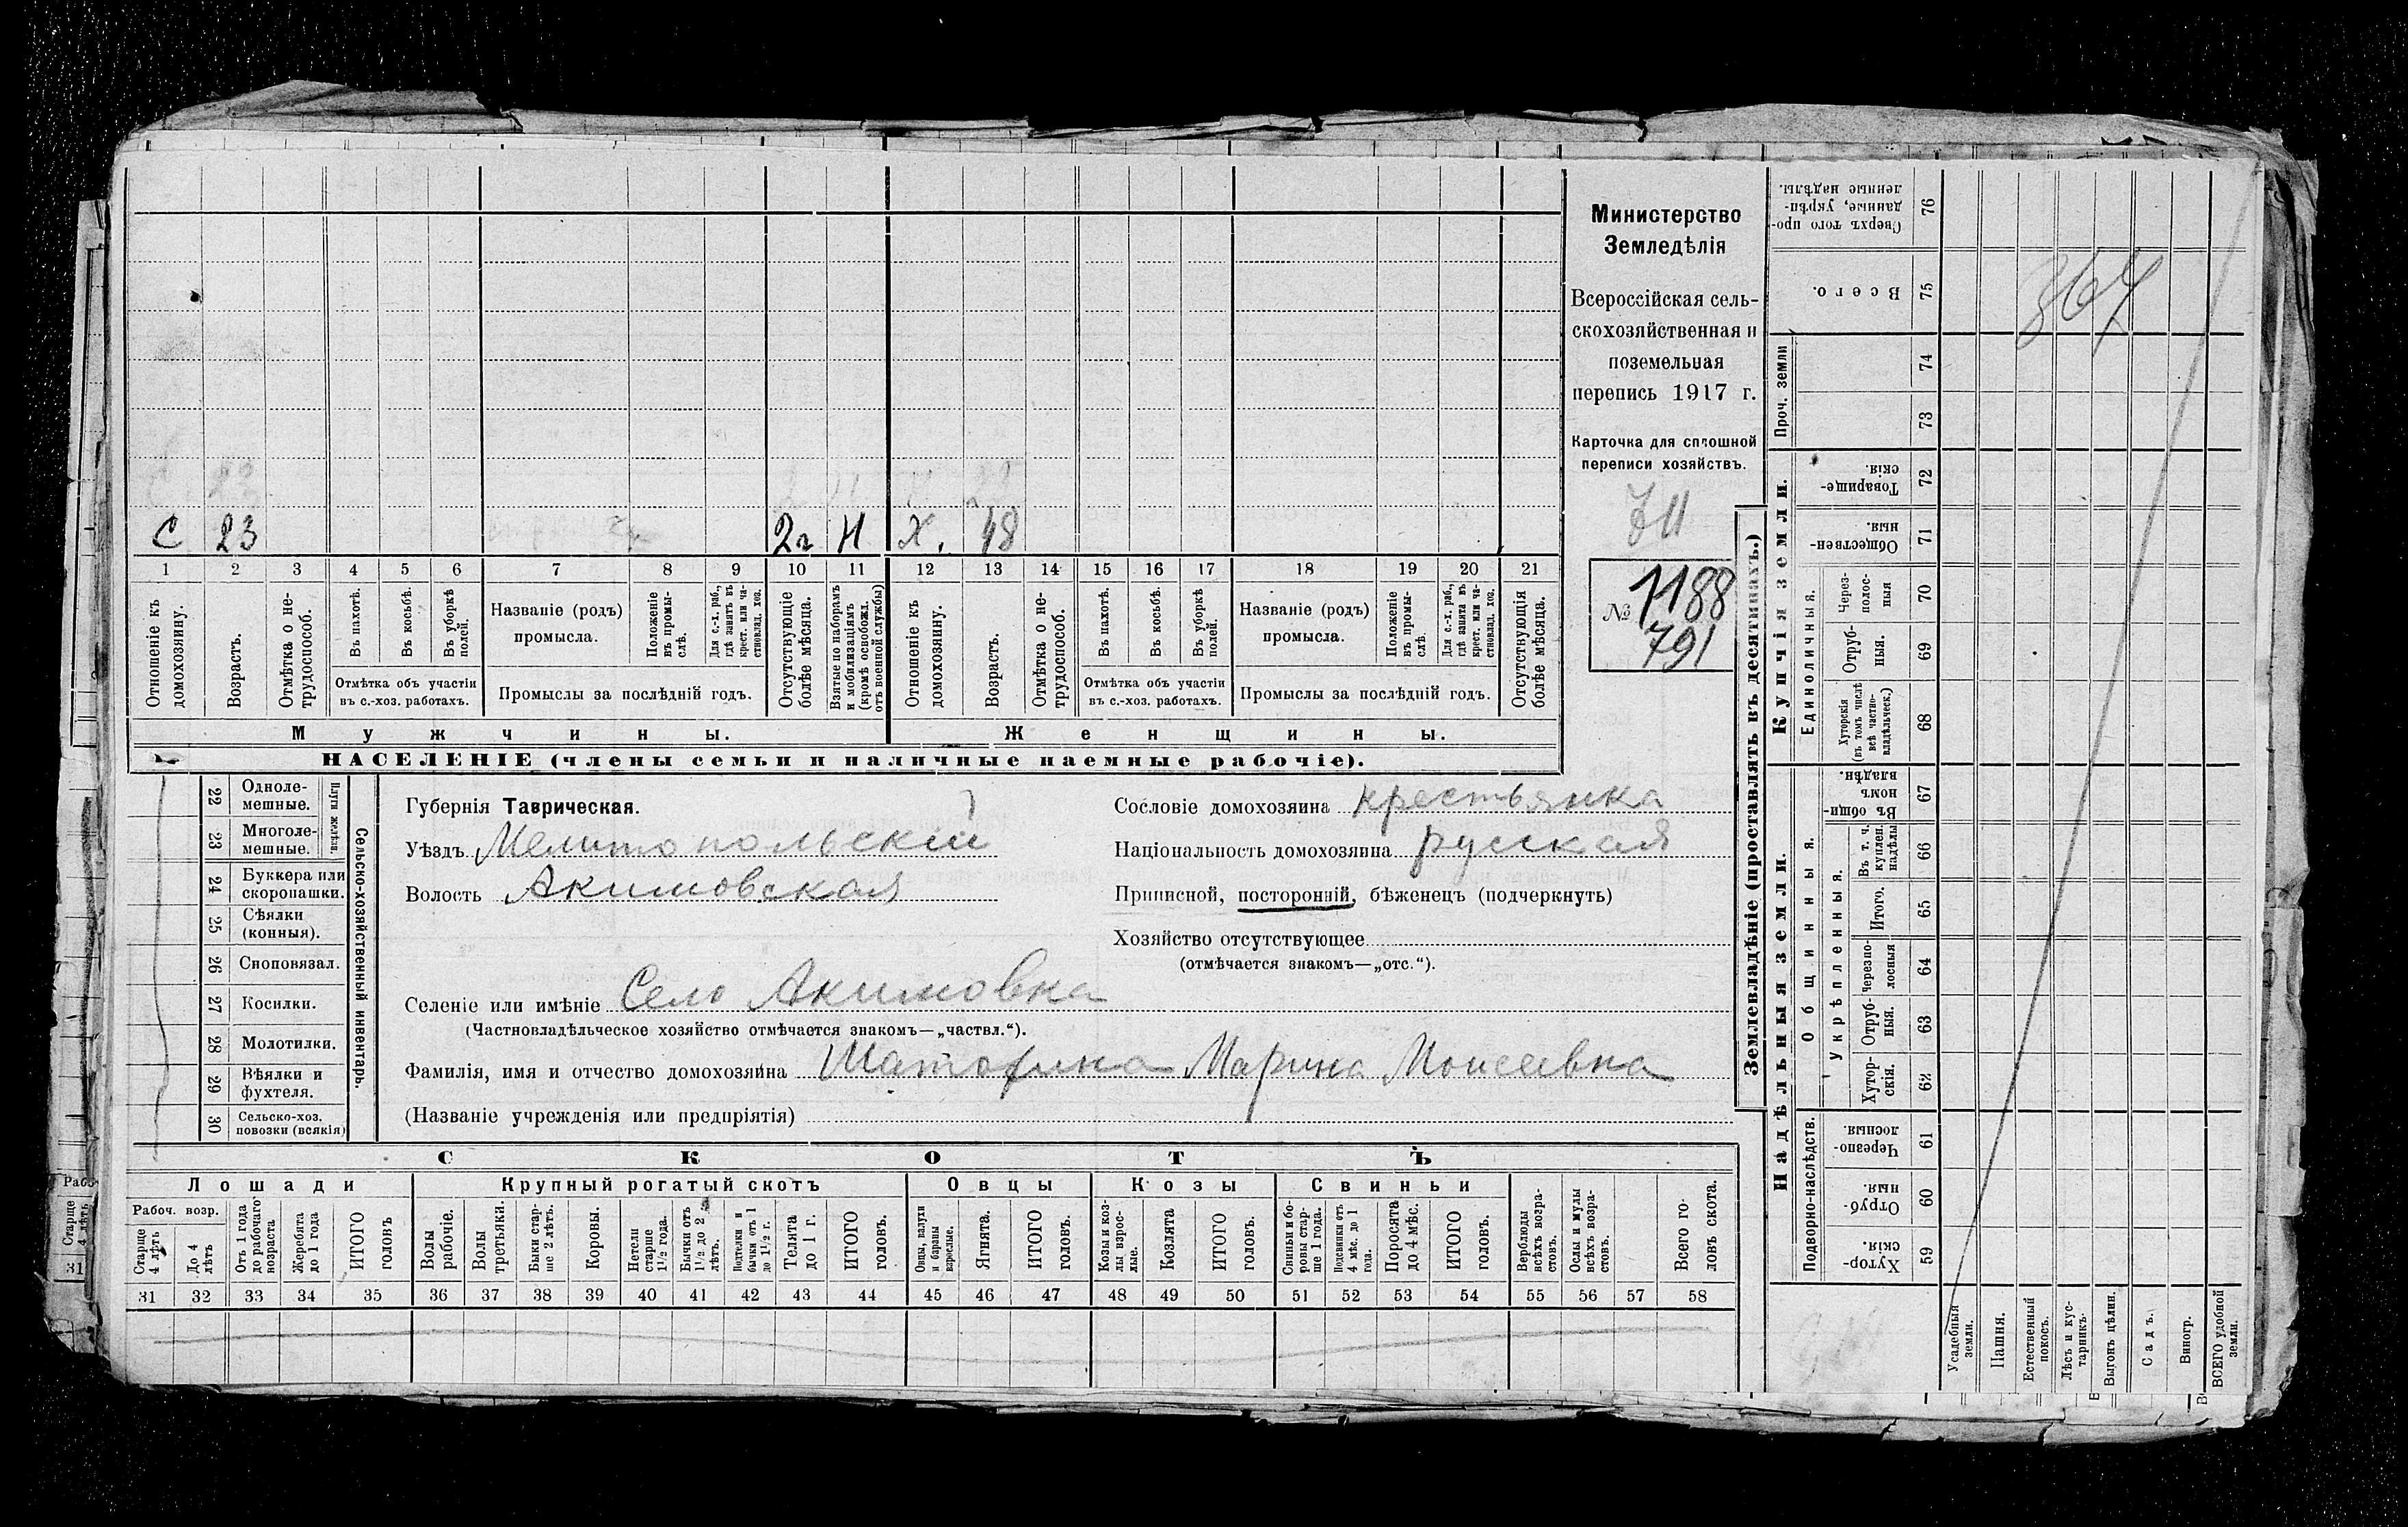 С 23 2г Н Х. 48
1 2 3 4 5 6 7 8 9 10 11 12 13 14 15 16 17 18 19 20 21
Отношеніе къ домохозяину.
Возрастъ.
Отмѣтка о не-трудоспособ.
Въ пахотѣ.
Въ косьбѣ.
Въ уборкѣ полей.
Отмѣтка объ участіи
въ с.-хоз. работахъ.
Названіе (родъ)
промысла.
Положеніе въ промы-слѣ.
Для с.-х. раб., гдѣ занятъ въ крест. или ча-стновлад. хоз.
Промыслы за послѣдній годъ.
Отсутствующіе болѣе мѣсяца.
Взятые по наборамъ и мобилизаціямъ (кромѣ освобожд. отъ военной службы)
Отношеніе къ домохозяину.
Возрастъ.
Отмѣтка о не-трудоспособ.
Въ пахотѣ.
Въ косьбѣ.
Въ уборкѣ полей.
Отмѣтка объ участіи
въ с.-хоз. работахъ.
Названіе (родъ)
промысла.
Положеніе въ промы-слѣ.
Для с.-х. раб., гдѣ занята въ крест. или ча-стновлад. хоз.
Промыслы за послѣдній годъ.
Отсутствующія болѣе мѣсяца.
Мужчины. Женщины.
НАСЕЛЕНІЕ (члены семьи и наличные наемные рабочіе).
Министерство
Земледѣлія
Всероссійская сель-
скохозяйственная и
поземельная
перепись 1917 г.
Карточка для сплошной
переписи хозяйствъ.
№ 1188
791
22 Одноле-мешные.
23 Многоле-мешные.
Плуги желѣзн.
24 Буккера или скоропашки.
25 Сѣялки (конныя).
26 Сноповязал.
27 Косилки.
28 Молотилки.
29 Вѣялки и фухтеля.
30 Сельско-хоз. повозки (всякія)
Сельско-хозяйственный инвентарь.
Губернія Таврическая.
Уѣздъ Мелитопольскій
Волость Акимовская
Сословіе домохозяина крестьянка
Національность домохозяина русская
Приписной, посторонній, бѣженецъ (подчеркнуть)
Хозяйство отсутствующее
(отмѣчается знакомъ—„отс.“).
Селеніе или имѣніе Село Акимовка
(Частновладѣльческое хозяйство отмѣчается знакомъ—„частвл.“).
Фамилія, имя и отчество домохозяина Марина Моисеевна
(Названіе учрежденія или предпріятія)
СКОТЪ
Лошади Крупный рогатый скотъ Овцы Козы Свиньи
Рабоч. возр.
Старше 4 лѣтъ
До 4 лѣтъ
Отъ 1 года до рабочаго возраста
Жеребята до 1 года
ИТОГО головъ
Волы рабочіе.
Волы третьяки.
Быки стар-ше 2 лѣтъ.
Коровы.
Нетели старше 1½ года.
Бычки отъ 1½ до 2 лѣтъ.
Подтелки и бычки отъ 1 до 1½ г.
Телята до 1 г.
ИТОГО головъ.
Овцы, валухи и бараны взрослые.
Ягнята.
ИТОГО головъ.
Козы и коз-лы взрос-лые.
Козлята
ИТОГО головъ.
Свиньи и бо-ровы стар-ше 1 года.
Подсвинки отъ 4 мѣс. до 1 года.
Поросята до 4 мѣс.
ИТОГО головъ.
Верблюды всѣхъ возра-стовъ.
Ослы и мулы всѣхъ возра-стовъ.
Всего го-ловъ скота.
31 32 33 34 35 36 37 38 39 40 41 42 43 44 45 46 47 48 49 50 51 52 53 54 55 56 57 58
Землевладѣніе (проставлять въ десятинахъ.)
Надѣльныя земли. Купчія земли. Проч. земли
Подворно-наслѣдств.
Общинныя.
Укрѣпленныя.
Единоличныя.
76 Сверхъ того про-данные, укрѣп-ленные надѣлы.
75 Всего.
74
73
72 Товарище-скія.
71 Обществен-ныя.
70 Через-полос-ныя
69 Отруб-ныя.
68 Хуторскія (въ томъ числѣ всѣ частно-владѣльческ.)
67 Въ общин-номъ владѣн.
66 Въ т. ч. куплен. надѣлы
65 Итого.
64 Черезпо-лосныя
63 Отруб-ныя.
62 Хутор-скія.
61 Черезпо-лосныя.
60 Отруб-ныя.
59 Хутор-скія.
Усадебныя земли.
Пашня.
Естественный покосъ.
Лѣсъ и кус-тарникъ.
Выгонъ цѣлин.
Садъ.
Виногр.
ВСЕГО удобной земли.
Старше 4 лѣтъ
31